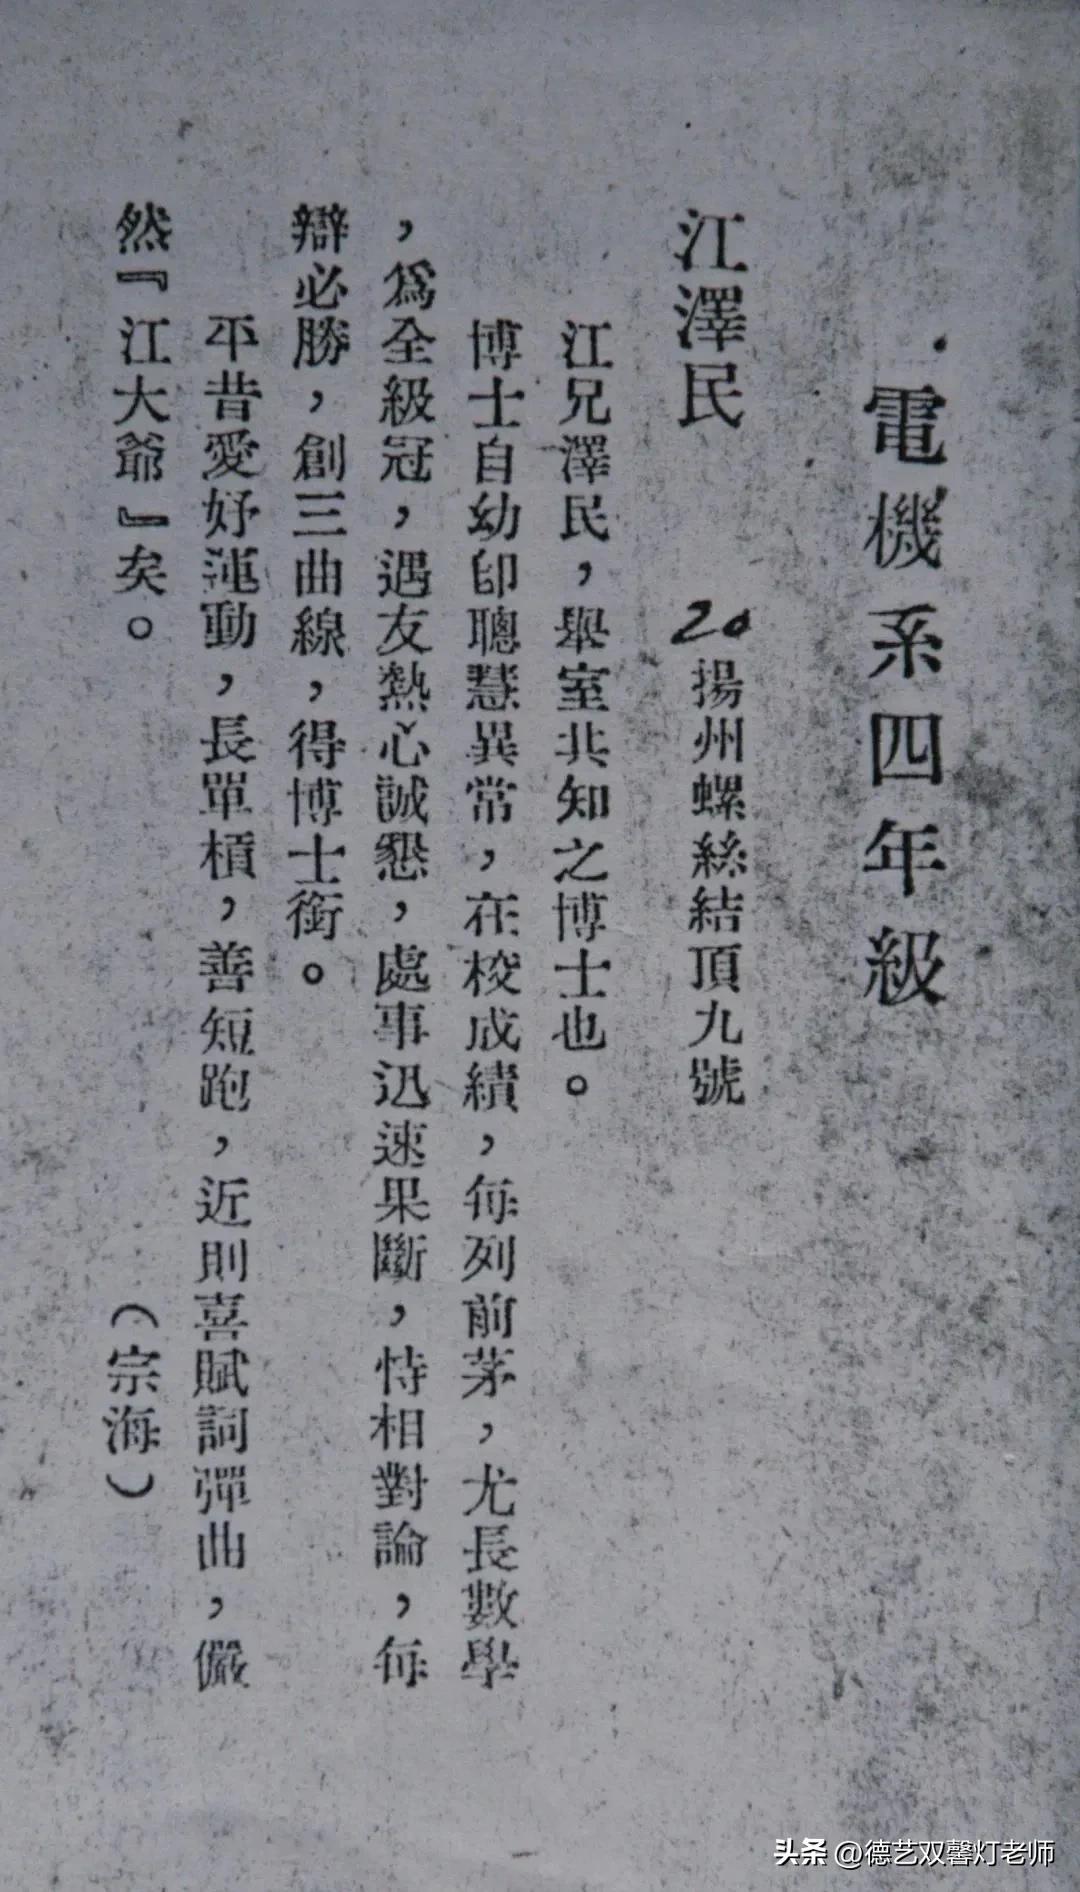 電機系四年級
江澤民 20揚州螺絲結頂九號
江兄澤民，舉室共知之博士也。
博士自幼卽聰慧異常，在校成績，每列前茅，尤長數學
，爲全級冠，遇友熱心誠懇，處事迅速果斷，恃相對論，每
辯必勝，創三曲線，得博士銜。
平昔愛好運動，長單槓，善短跑，近則喜賦詞彈曲，儼
然『江大爺』矣。 （宗海）
头条 @德艺双馨灯老师